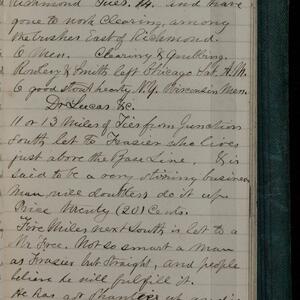 Richmond Tues. 14. and have
gone to work Clearing, among
the brushes East of Richmond.
6 Men. Clearing & Grubbing.
& Smith left Chicago Sat. A.M.
6 good stout hearty N.Y. Wisconsin Men
Dr Lucas &c.
11 or 13 Miles of Ties from Junction
South let to Frasier who lives
just above the Base Line. & is
said to be a very stirring business
man, will doubtless do it up.
Price Twenty (20) Cents.
Five Miles next South is let to a
Mr. Free. Not so smart a man
as Frasier but straight, and people
believe he will fulfill it.
He has got